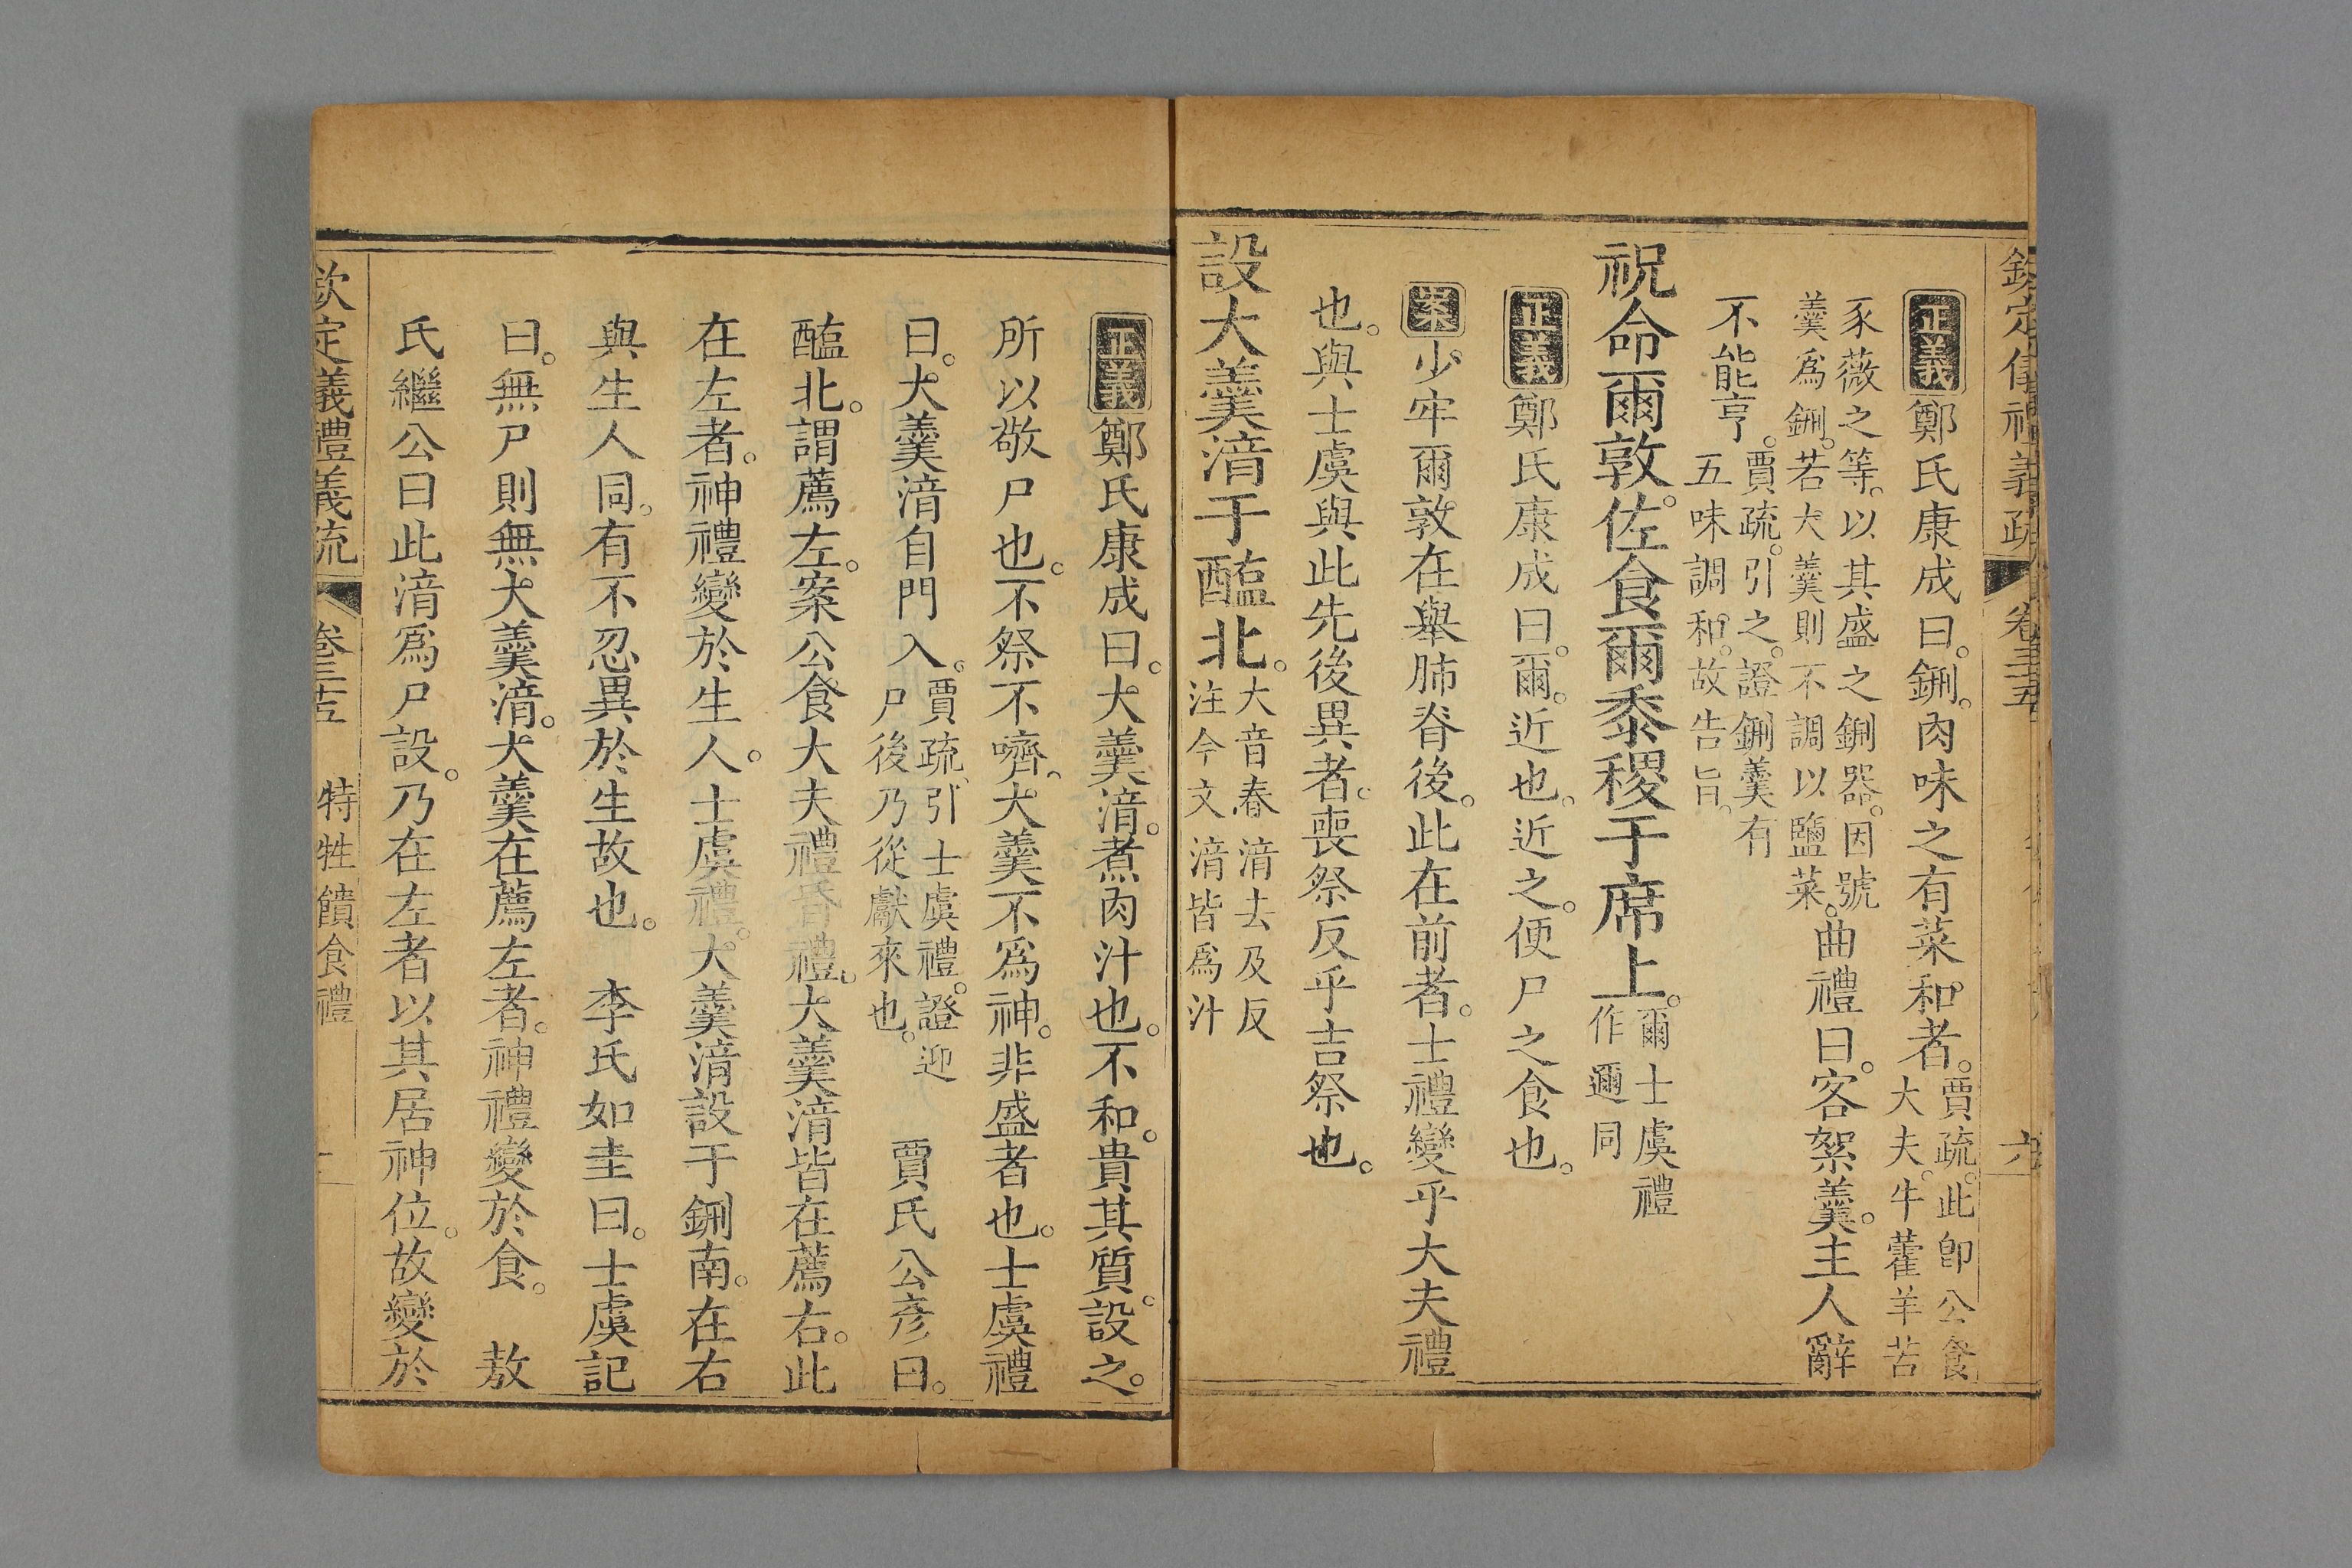 欽定儀禮義疏　卷三十五　六
正義鄭氏康成曰。鉶。肉味之有菜和者。賈疏。此卽公食大夫。牛藿羊苦
豕薇之等。以其盛之鉶器。因號羹爲鉶。若大羹則不調以鹽菜。曲禮曰。客絮羹。主人辭
不能亨。賈疏。引之。證鉶羹有五味調和。故告旨。
祝命爾敦。佐食爾黍稷于席上。爾士虞禮作邇同
正義鄭氏康成曰。爾。近也。近之。便尸之食也。
案少牢爾敦在舉肺脊後。此在前者。士禮變乎大夫禮
也。與士虞與此先後異者。喪祭反乎吉祭也。
設大羹湆于醢北。大音春湆去及反注今文湆皆爲汁
正義鄭氏康成曰。大羹湆。煮肉汁也。不和。貴其質。設之。
所以敬尸也。不祭不嚌。大羹不爲神。非盛者也。士虞禮
曰。大羹湆自門入。賈疏、引士虞禮。證迎尸後乃從獻來也。　賈氏公彥曰。
醢北。謂薦左。案公食大夫禮昏禮。大羹湆皆在薦右。此
在左者。神禮變於生人。士虞禮。大羹湆設于鉶南。在右
與生人同。有不忍異於生故也。　李氏如圭曰。士虞記
曰。無尸則無大羹湆。大羹在薦左者。神禮變於食。　敖
氏繼公曰此湆爲尸設。乃在左者以其居神位。故變於
欽定義禮義疏　特牲饋食禮